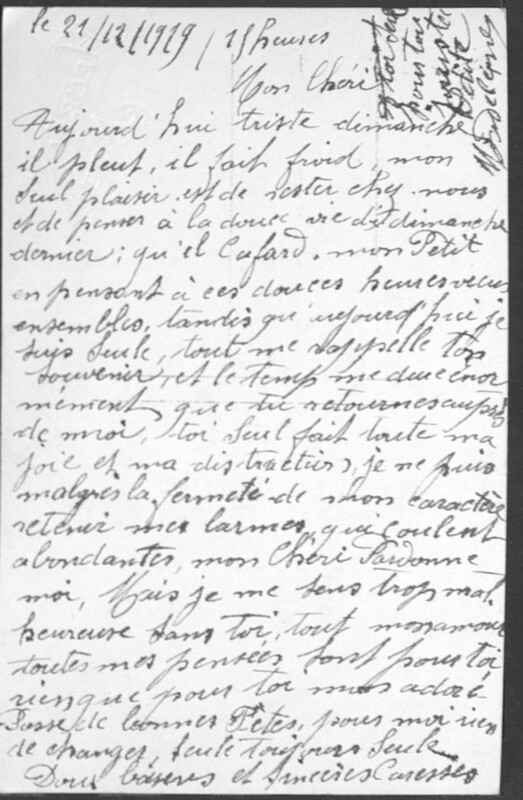 le 21/12/1919 / 15 heures
Mon Chéri
Aujourd'hui triste dimanche
il pleut, il fait froid, mon
seul plaisir est de rester chez nous
et de penser à la douce vie de dimanche
dernier; qu'el Cafard, mon Petit
en pensant à ces douces heures vecus
ensembles, tandis qu'aujourd'hui je
suis seule, tout me rappelle ton
souvenir, et le temps me dure énor
mément, que tu retournes auprès
de moi, toi seul fait toute ma
joie et ma distraction, je ne puis
malgrès la fermeté de mon caractère
retenir mes larmes, qui coulent
abondantes, mon Chéri Pardonne
moi, Mais je me sens trop mal
heureuse sans toi, tout mon amour
toutes mes pensées sont pour toi
rien que pour toi mon adoré
Passe de bonnes Fêtes, pour moi rien
de changer, seule toujours seule
Doux baisers et sincères Caresses
à toi seul
pour toi
toute
Petite